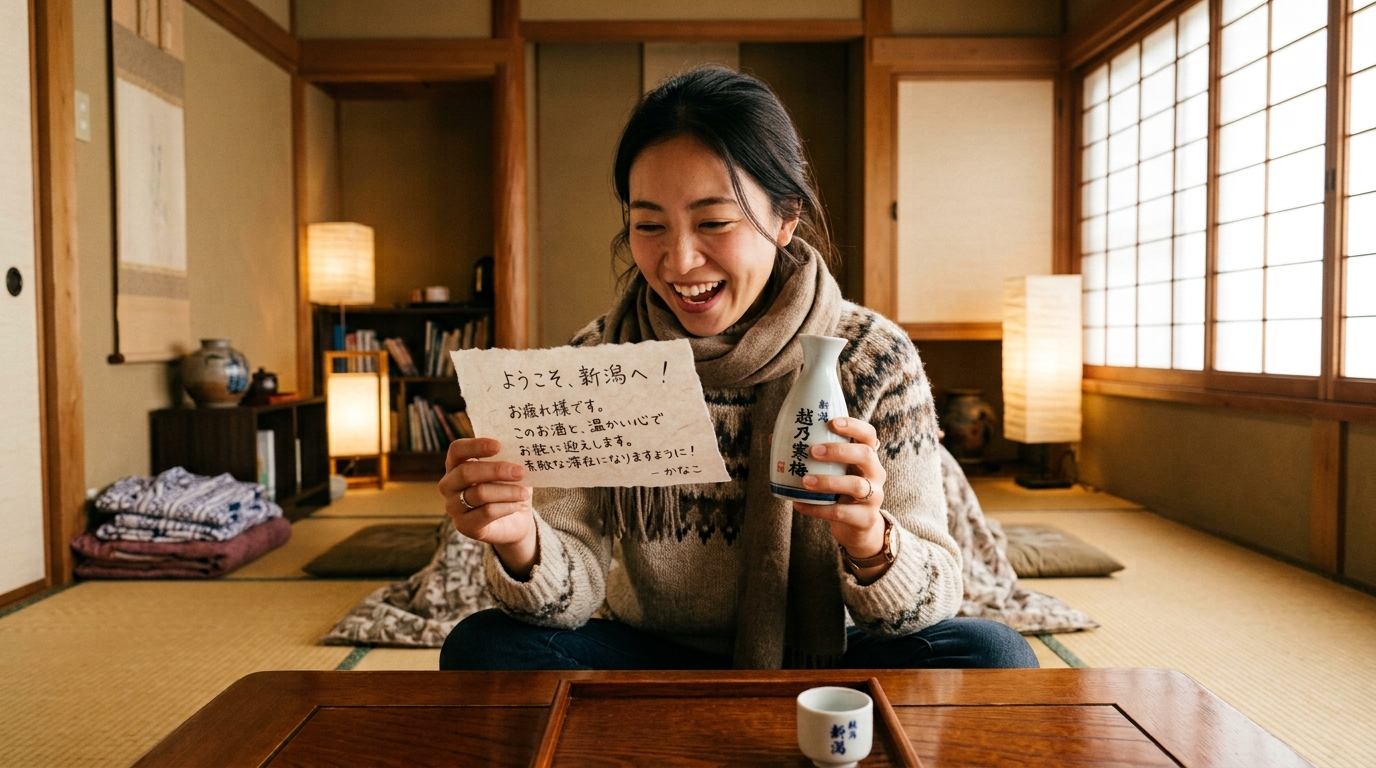 ようこそ、新潟へ！
お疲れ様です。
このお酒と、温かい心で
お迎えします。
素敵な滞在になりますように！
ーかなこ
新潟
越乃寒梅
新潟